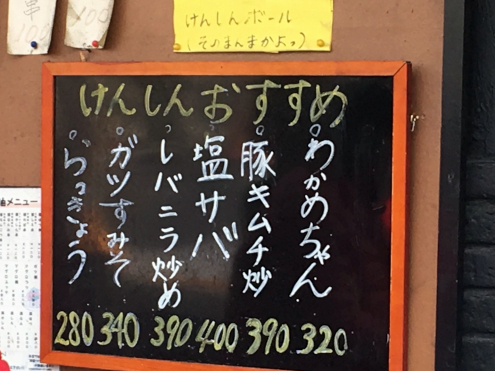 100
100
けんしんボール
(そのまんまかよっ)
けんしんおすすめ
わかめちゃん 320
豚キムチ炒 390
塩サバ 400
レバニラ炒め 390
ガツすみそ 340
らっきょう 280
メニュー